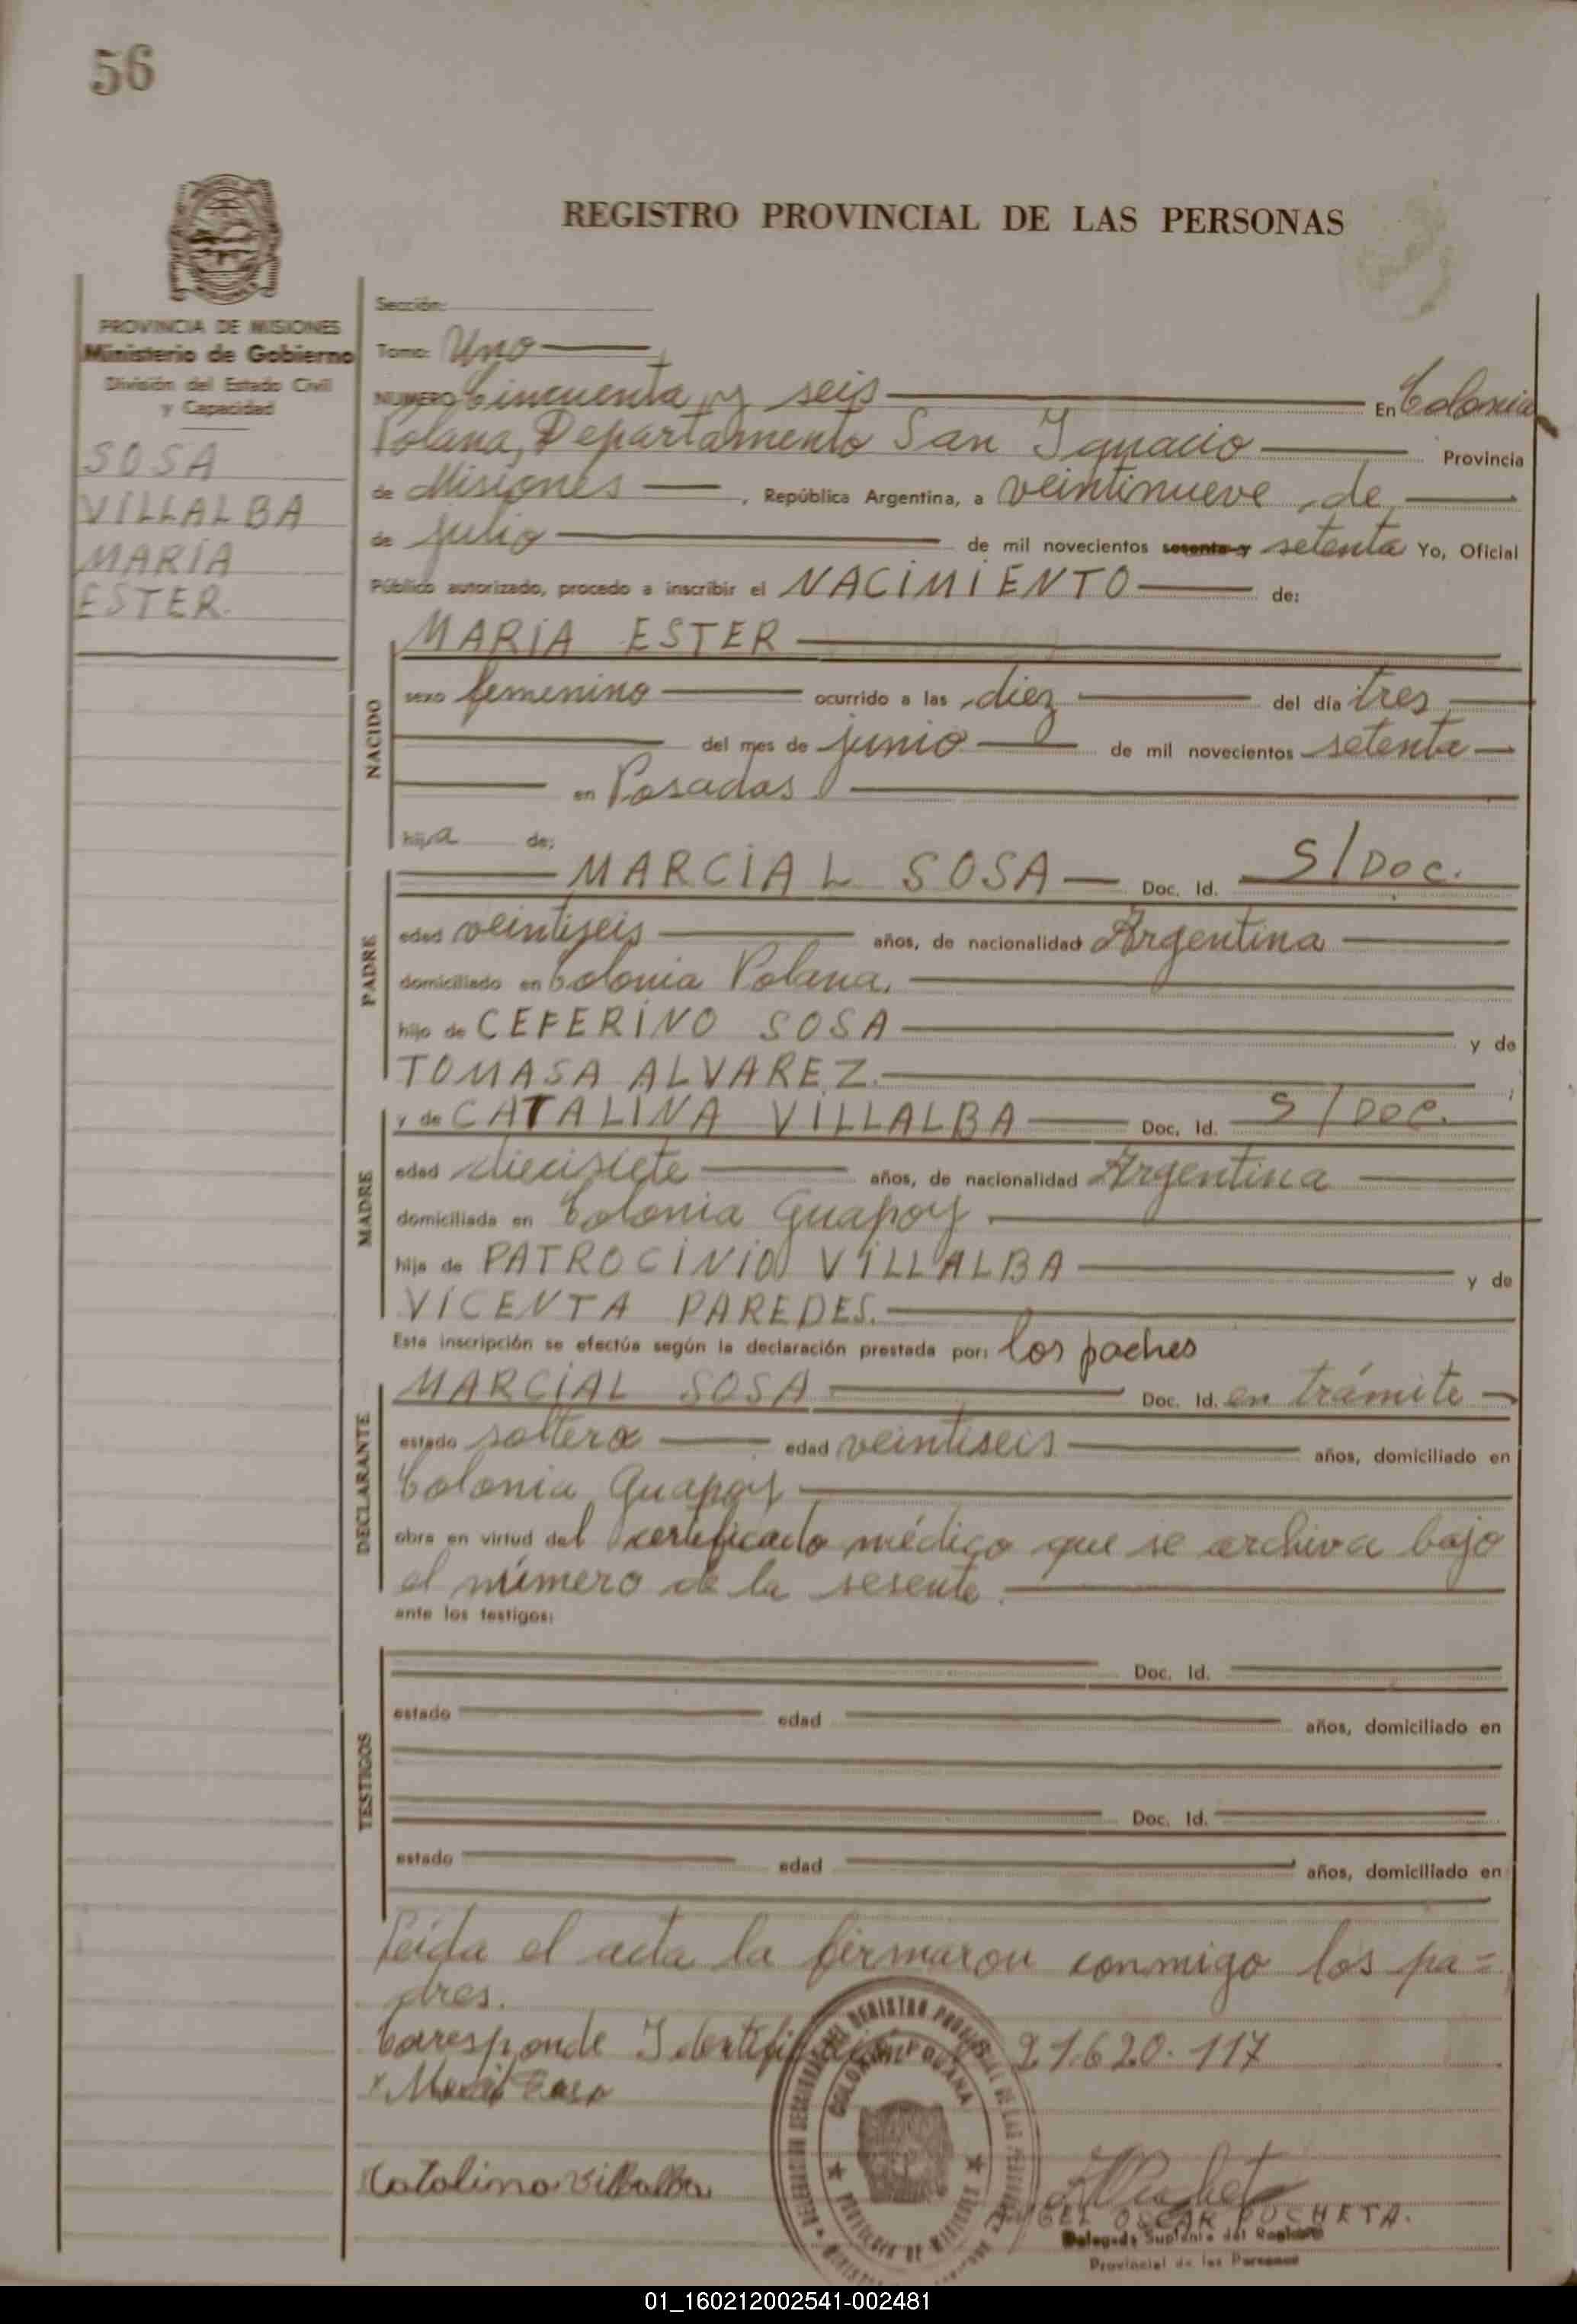 56
REGISTRO PROVINCIAL DE LAS PERSONAS
PROVINCIA DE MISIONES
Ministerio de Gobierno
División del Estado Civil
y Capacidad
SOSA
VILLALBA
MARIA
ESTER.
Sección:
Tomo: Uno
NUMERO Cincuenta y seis En Colonia
Polana, Departamento San Ignacio Provincia
de Misiones , República Argentina, a veintinueve de
de julio de mil novecientos sesenta y setenta Yo, Oficial
Público autorizado, procedo a inscribir el NACIMIENTO de:
NACIDO
MARIA ESTER
sexo femenino ocurrido a las diez del día tres
del mes de junio de mil novecientos setenta
en Posadas
hija de:
PADRE
MARCIAL SOSA Doc. Id. S/Doc.
edad veintiseis años, de nacionalidad Argentina
domiciliado en Colonia Polana.
hijo de CEFERINO SOSA y de
TOMASA ALVAREZ.
MADRE
y de CATALINA VILLALBA Doc. Id. S/Doc.
edad diecisiete años, de nacionalidad Argentina
domiciliada en Colonia Guapoy
hija de PATROCINIO VILLALBA y de
VICENTA PAREDES.
Esta inscripción se efectúa según la declaración prestada por: los padres
DECLARANTE
MARCIAL SOSA Doc. Id. en trámite
estado soltero edad veintiseis años, domiciliado en
Colonia Guapoy
obra en virtud del certificado médico que se archiva bajo
el número de la sesente.
ante los testigos:
TESTIGOS
Doc. Id.
estado edad años, domiciliado en
Doc. Id.
estado edad años, domiciliado en
Leida el acta la firmaron conmigo los pa=
dres.
Corresponde Identificación 21.620.117
Catalina Villalba
OSCAR POCHETA.
Delegado Suplente del Registro
Provincial de las Personas
01_160212002541-002481